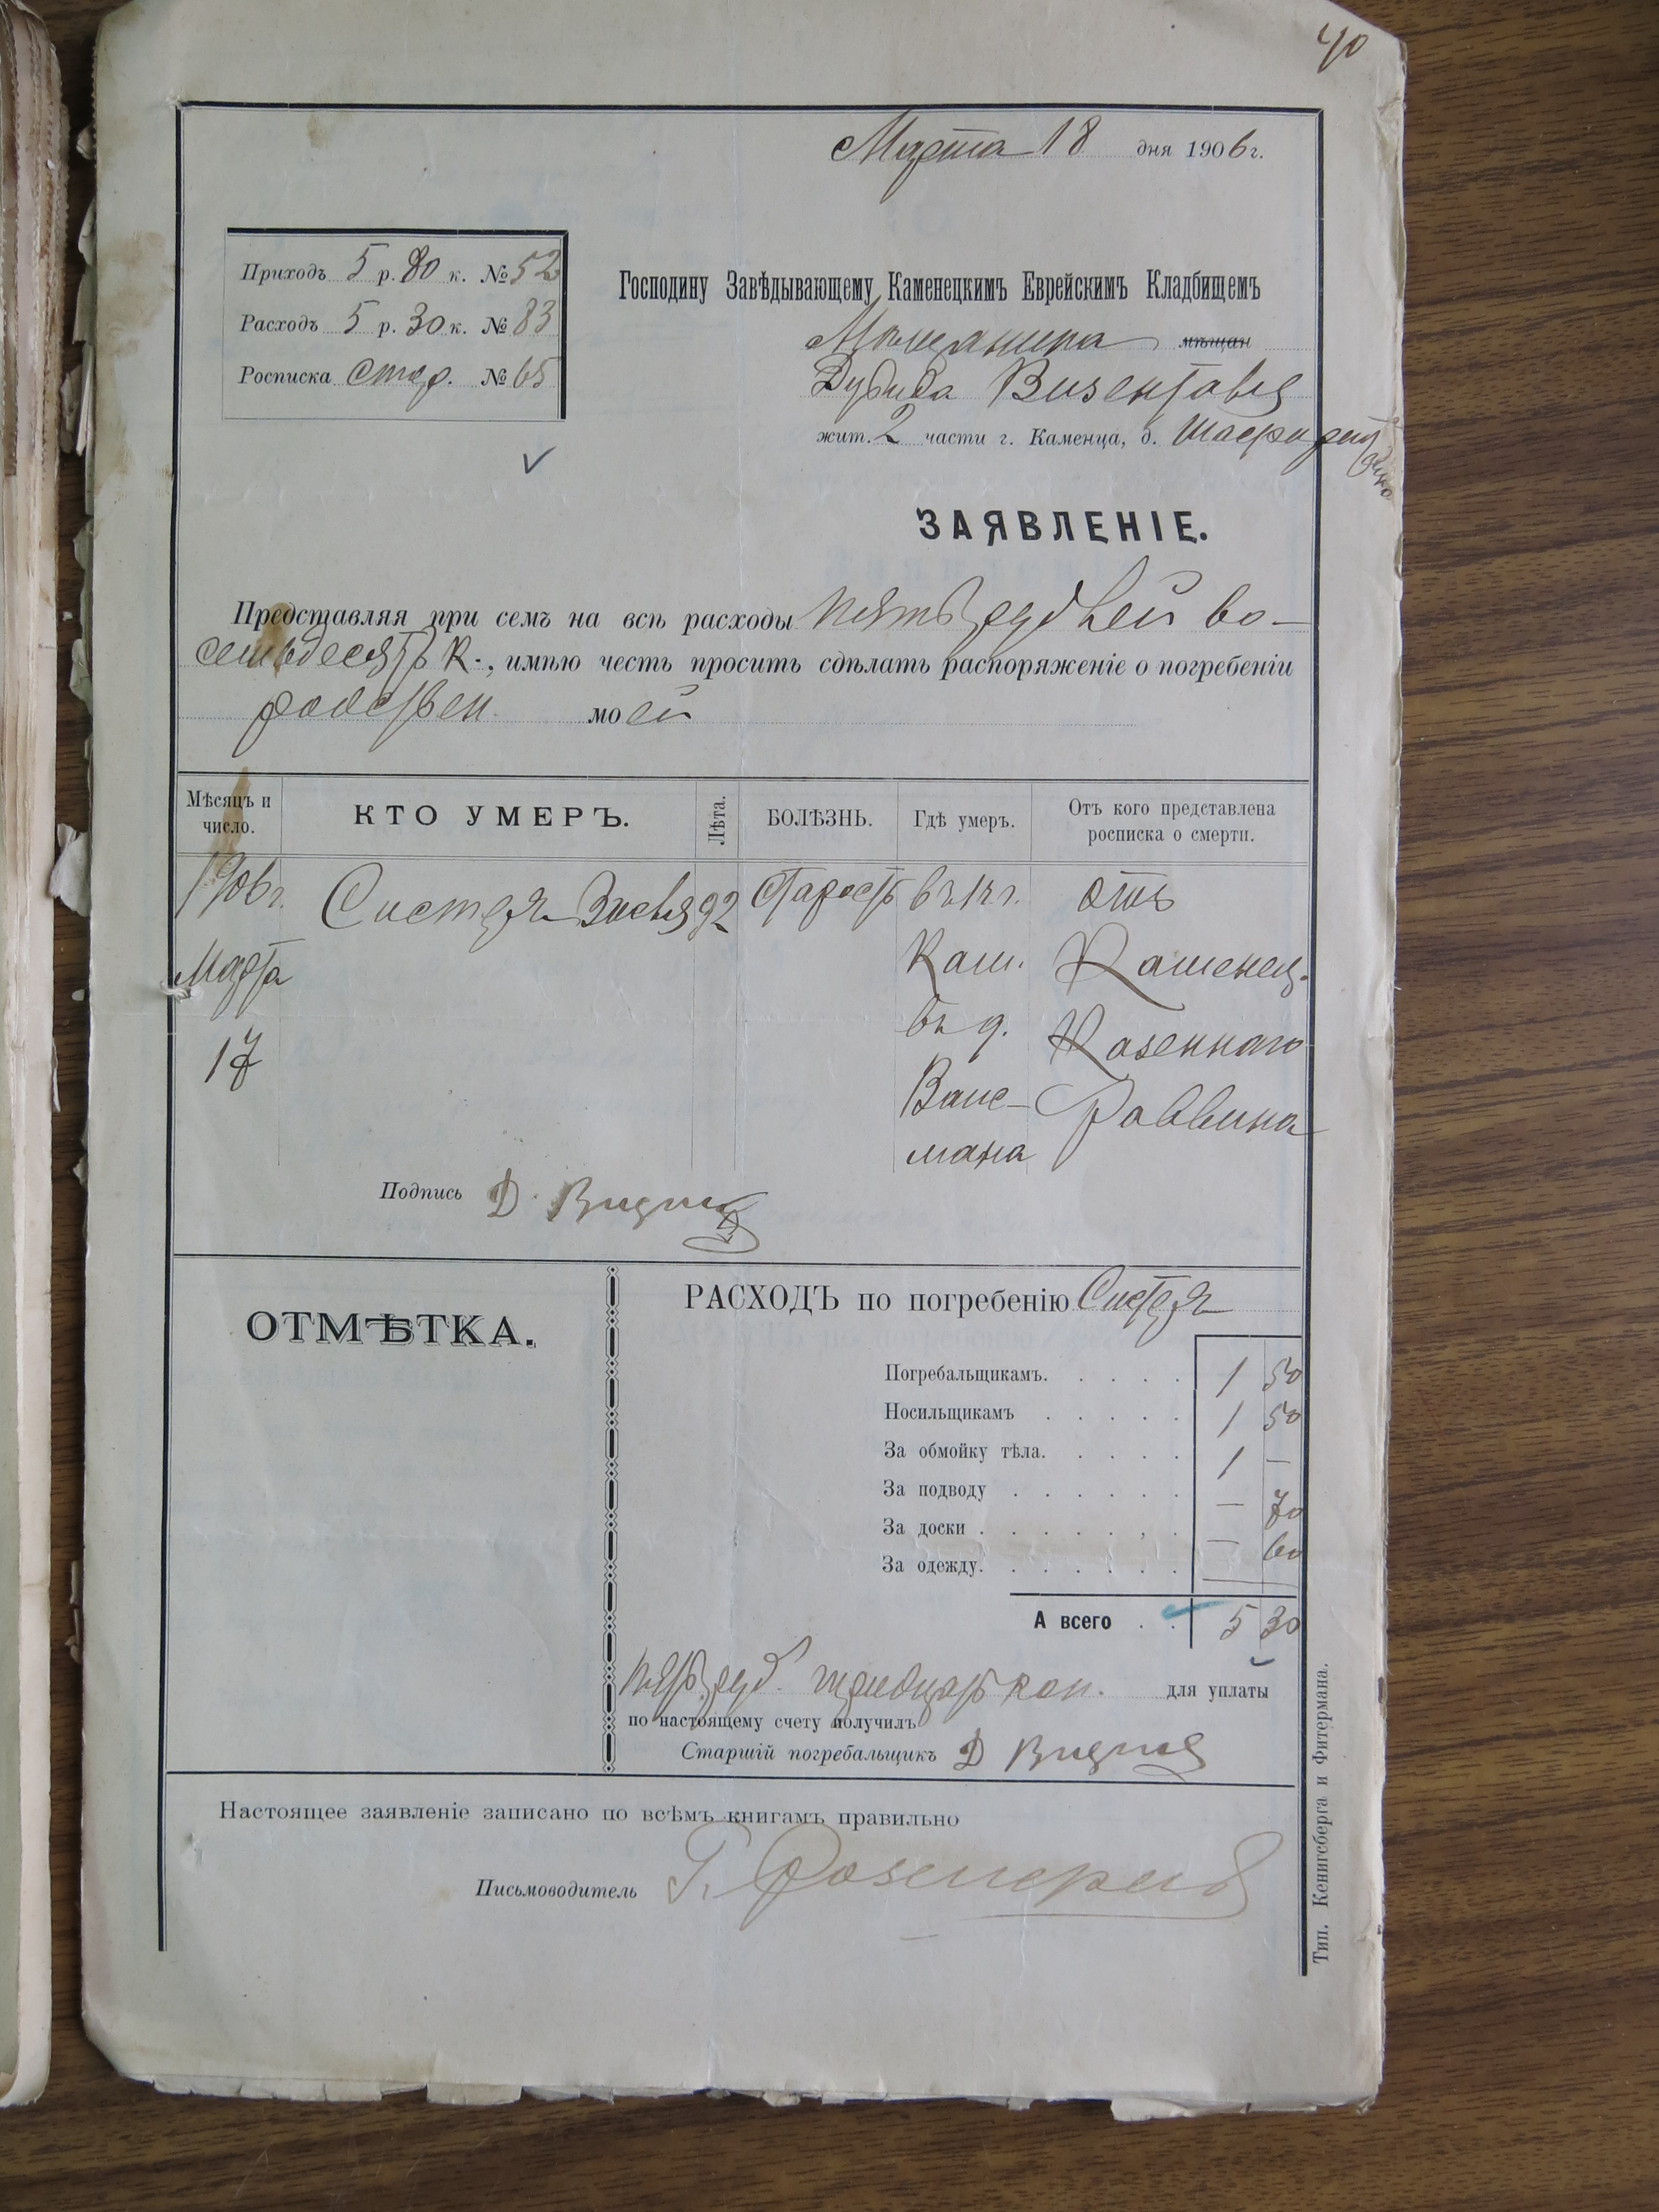 40
Марта 18 дня 1906 г.
Приходъ 5 р. 80 к. № 52
Расходъ 5 р. 30 к. № 83
Росписка стар. № 65
Господину Завѣдывающему Каменецкимъ Еврейскимъ Кладбищемъ
Мѣщанина мѣщан
Дувида
жит. 2 части г. Каменца, д.
ЗАЯВЛЕНІЕ.
Представляя при семъ на всѣ расходы пять рублей во-
семьдесятъ к., имѣю честь просить сдѣлать распоряженіе о погребеніи
родствен. моей
Мѣсяцъ и число.
КТО УМЕРЪ.
Лѣта.
БОЛѢЗНЬ.
Гдѣ умеръ.
Отъ кого представлена росписка о смерти.
1906 г.
Марта
17
92
Старость
въ г.
Кам.
въ д.
Вайс-
мана
Отъ
Каменец.
Казеннаго
Раввина
Подпись Д.
ОТМѢТКА.
РАСХОДЪ по погребенію
Погребальщикамъ. 1 50
Носильщикамъ 1 50
За обмойку тѣла. 1 —
За подводу — 70
За доски — 60
За одежду.
А всего 5 30
пять руб. тридцать коп. для уплаты
по настоящему счету получилъ
Старшій погребальщикъ Д
Настоящее заявленіе записано по всѣмъ книгамъ правильно
Письмоводитель Г.
Тип. Кенигсберга и Фитермана.